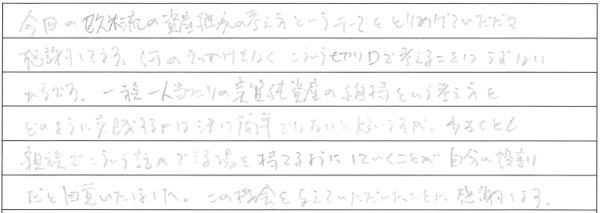 今回の欧米流の資産継承の考え方というテーマをとりあげていただき
感謝してます。何のきっかけもなくこういう切り口で考えることはまずない
からです。一族一人当たりの実質純資産の維持という考え方を
どのように実践するかは決して簡単でないと思いますが、少なくとも
親族でこういう話ができる場を持てるようにしていくことが自分の役割
だと自覚いたしました。この機会を与えていただいたことに感謝します。